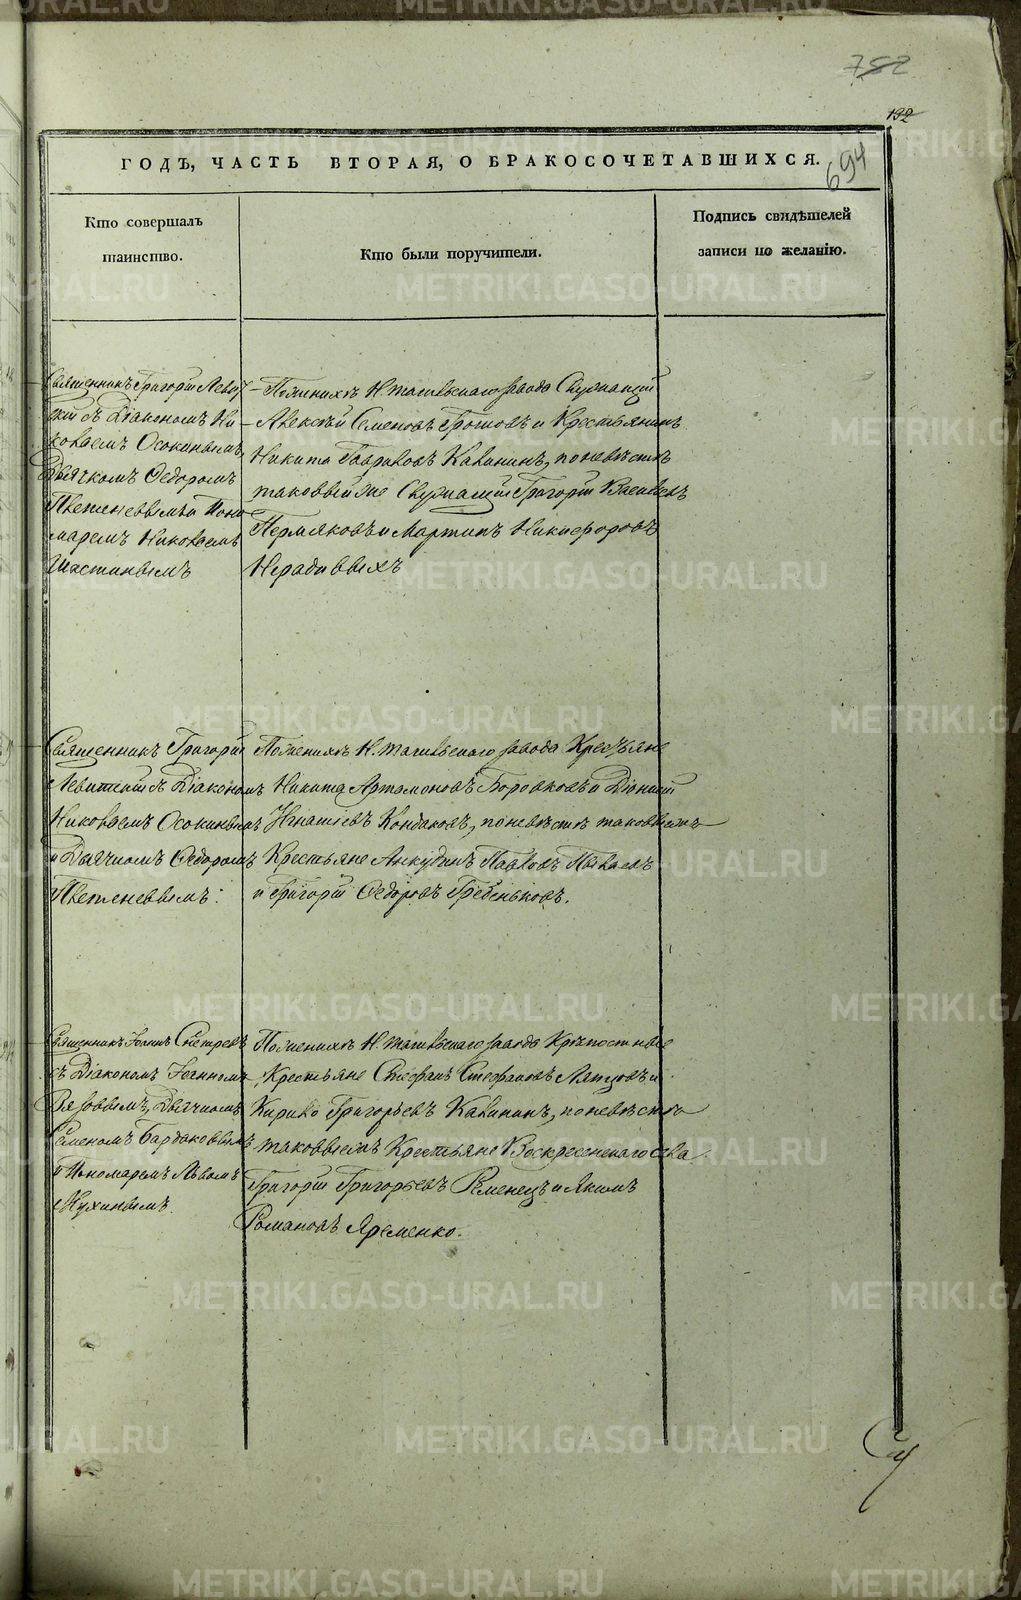 782
192
694
ГОДЪ, ЧАСТЬ ВТОРАЯ, О БРАКОСОЧЕТАВШИХСЯ.
Кто совершалъ
таинство.
Кто были поручители.
Подпись свидѣтелей
записи по желанію.
Священникъ Григорій Левит-
скій съ Діакономъ Ни-
колаемъ Осокинымъ,
Дьячкомъ Федоромъ
и Поно-
маремъ Николаемъ
Шастинымъ
По женихѣ Н. Тагильскаго завода Служащій
Алексѣй Семеновъ и Крестьянинъ
Никита Гавриловъ Калининъ, по невѣстѣ
таковый же Служащій Григорій Васильевъ
Пермяковъ и Мартинъ Никифоровъ
Нерадивыхъ
Священникъ Григорій
Левитскій съ Діакономъ
Николаемъ Осокинымъ
и Дьячкомъ Федоромъ
По женихѣ Н. Тагильскаго завода Крестьяне
Никита Артамоновъ Боровковъ и Діонисій
Игнатіевъ Кондаковъ, по невѣстѣ таковыежъ
Крестьяне Анкудинъ Павловъ
и Григорій Федоровъ Гребеньковъ.
Священникъ Іоаннъ
съ Діакономъ Іоанномъ
Дьячкомъ
Семеномъ Бардаковымъ
и Пономаремъ Львомъ
Мухинымъ.
По женихѣ Н. Тагильскаго завода Крѣпостные
Крестьяне Стефанъ Стефановъ и
Кирило Григорьевъ Калининъ, по невѣстѣ
таковыежъ Крестьяне Воскресенскаго села
Григорій Григорьевъ Ременецъ и Якимъ
Романовъ Яременко.
METRIKI.GASO-URAL.RU